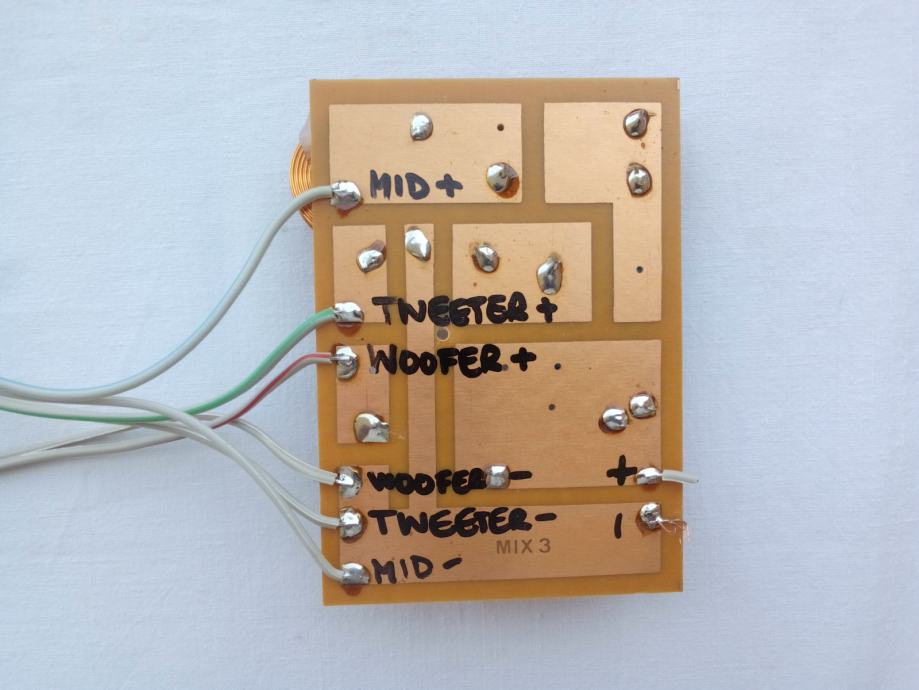 MID +
TWEETER +
WOOFER +
WOOFER - +
TWEETER - -
MIX 3
MID -